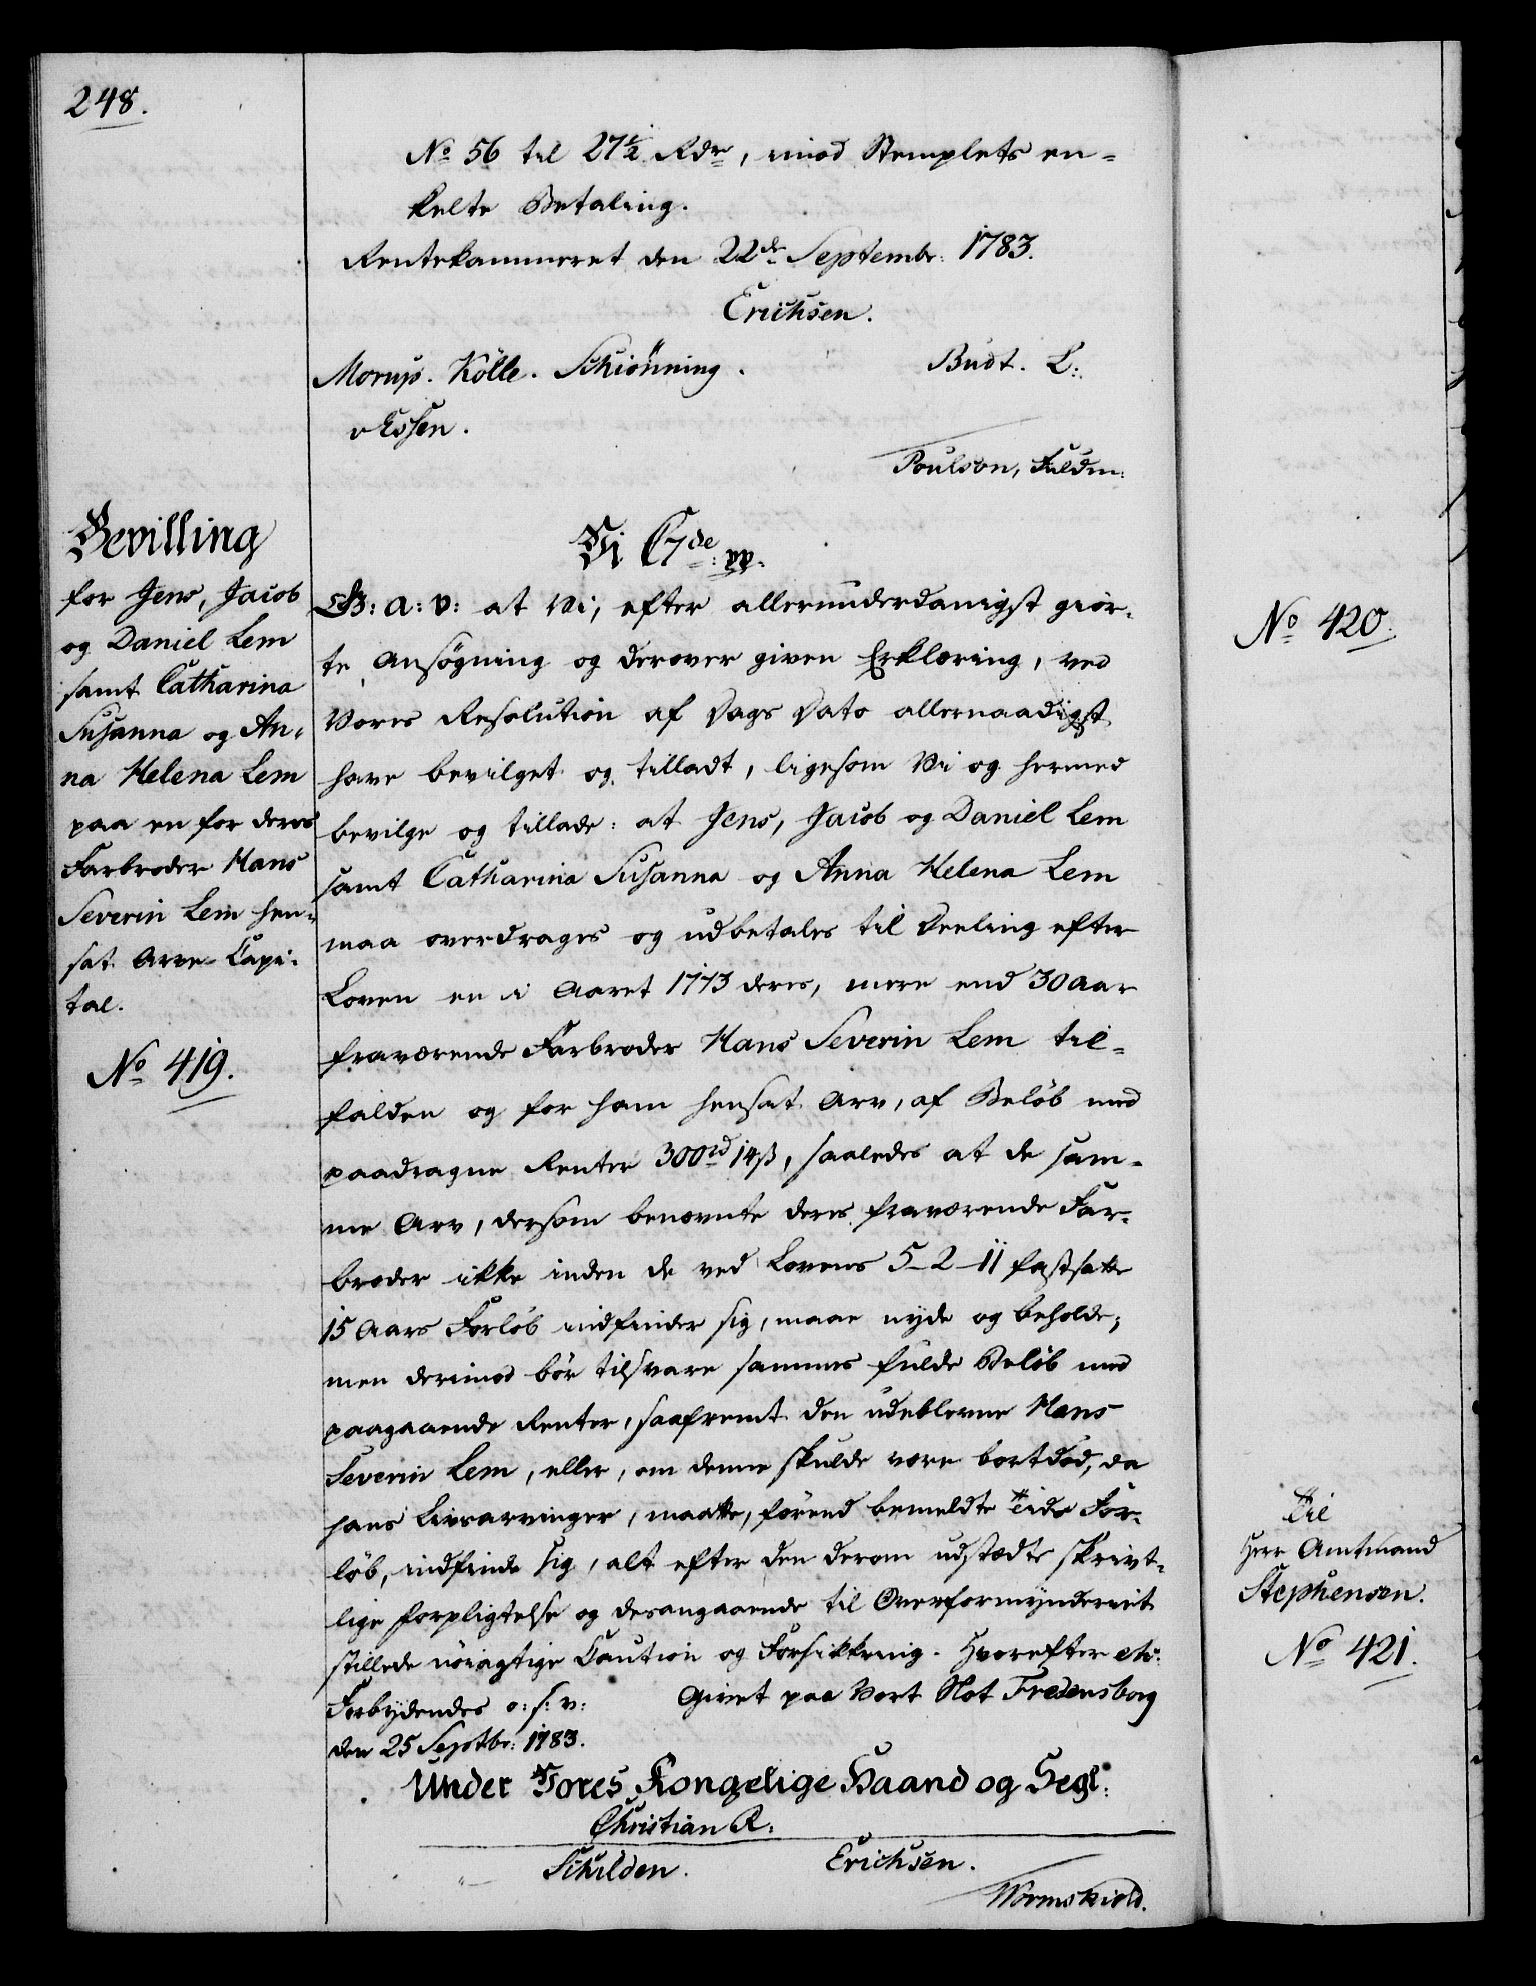 248.
No 56 til 27½ Rdr, imod Stemplets en-
kelte Betaling.
Rentekammeret den 22de Septembr: 1783.
Erichsen.
Morup. Kölle. Schiönning.
Budt. L:
v Essen.
Poulson, Fuldm:
Bevilling
for Jens, Jacob
og Daniel Lem
samt Catharina
Susanna og An-
na Helena Lem
paa en for deres
Farbroder Hans
Severin Lem hen-
sat Arve-Capi-
tal.
No 419.
Vi C7de: pp.
G: a: v: at Vi, efter allerunderdanigst giör-
te Ansøgning og derover given Erklæring, ved
Vores Resolution af Dags Dato allernaadigst
have bevilget og tilladt, ligesom Vi og hermed
bevilge og tillade: at Jens, Jacob og Daniel Lem
samt Catharina Susanna og Anna Helena Lem
maa overdrages og udbetales til Deeling efter
Loven en i Aaret 1773 deres, mere end 30 Aar
fraværende Farbroder Hans Severin Lem til-
falden og for ham hensat Arv, af Beløb med
paadragne Renter 300rd 14ß, saaledes at de sam-
me Arv, dersom benævnte deres fraværende Far-
broder ikke inden de ved Lovens 5-2-11 fastsatte
15 Aars Forløb indfinder sig, maae nyde og beholde;
men derimod bör tilsvare sammes fulde Beløb med
paagaaende Renter, saafremt den udeblevne Hans
Severin Lem, eller, om denne skulde være bortdød, da
hans Livsarvinger, maatte, förend bemeldte Tids For-
löb, indfinde sig, alt efter den derom udstædte skrivt-
lige Forpligtelse og desangaaende til Overformynderiet
stillede nöiagtige Caution og Forsikkring. Hvorefter etc:
Forbydendes o: s: v:
Givet paa Vort Slot Fredensborg
den 25 Septbr: 1783.
Under Vores Kongelige Haand og Segl.
Christian R.
Schilden.
Erichsen.
Wormskiold.
No 420.
Til
Herr Amtmand
Stephensen.
No 421.